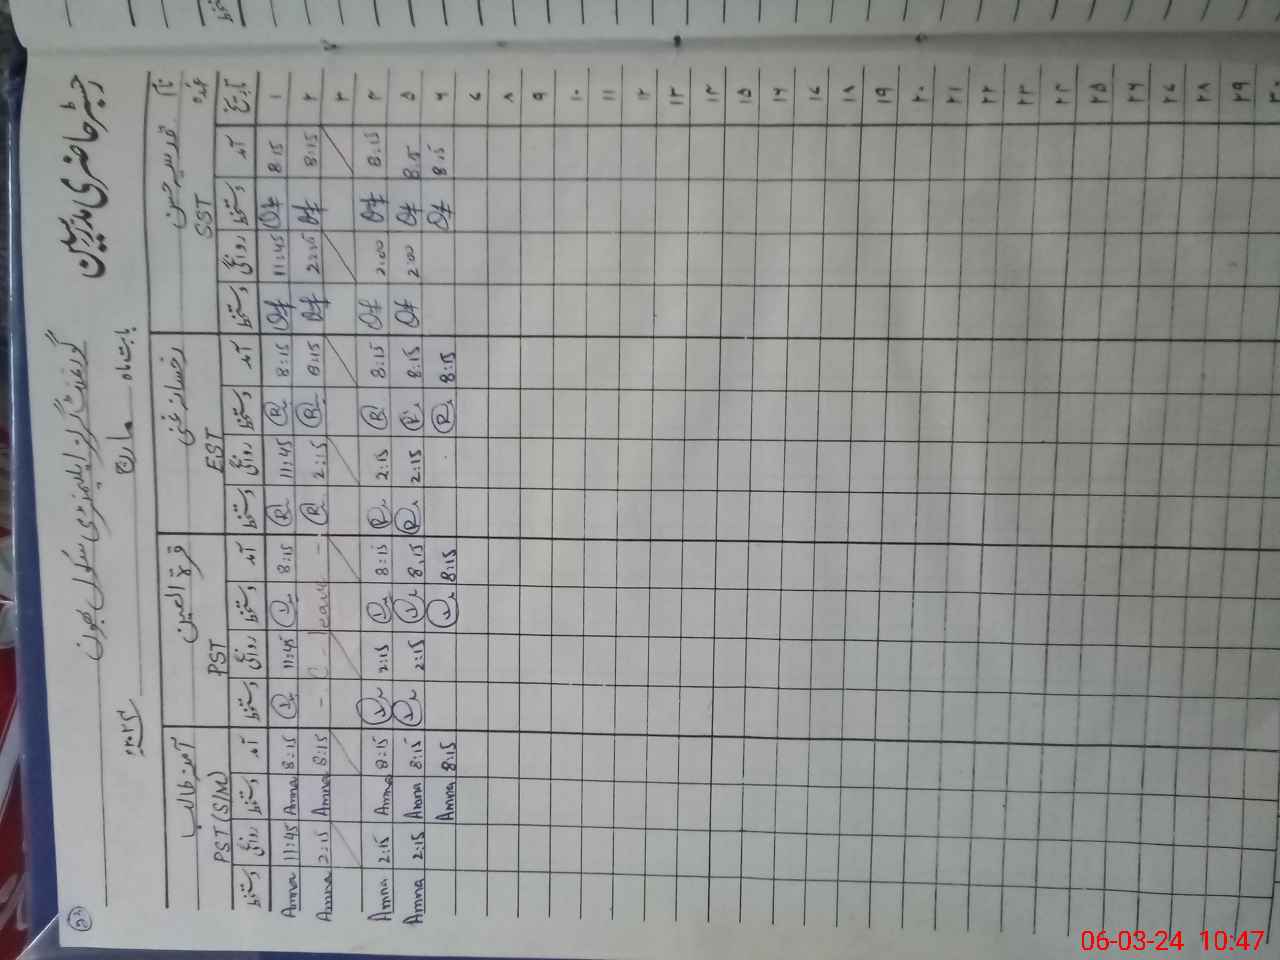 رجسٹر حاضری مدرسین
گورنمنٹ گرلز ایلیمنٹری سکول بھون
بابت ماہ مارچ
نام
عہدہ SST EST PST PST (S/M)
آمنہ طالب
قرۃ العین
تاریخ آمد دستخط روانگی دستخط آمد دستخط روانگی دستخط آمد دستخط روانگی دستخط آمد دستخط روانگی دستخط
۱ 8:15 11:45 8:15 R 11:45 R 8:15 11:45 8:15 Amna 11:45 Amna
۲ 8:15 2:15 8:15 R 2:15 R - C - leave - 8:15 Amna 2:15 Amna
۳
۴ 8:15 2:00 8:15 R 2:15 R 8:15 2:15 8:15 Amna 2:15 Amna
۵ 8:15 2:00 8:15 R 2:15 R 8:15 2:15 8:15 Amna 2:15 Amna
۶ 8:15 8:15 R 8:15 8:15 Amna
۷
۸
۹
۱۰
۱۱
۱۲
۱۳
۱۴
۱۵
۱۶
۱۷
۱۸
۱۹
۲۰
۲۱
۲۲
۲۳
۲۴
۲۵
۲۶
۲۷
۲۸
۲۹
۳۰
06-03-24 10:47